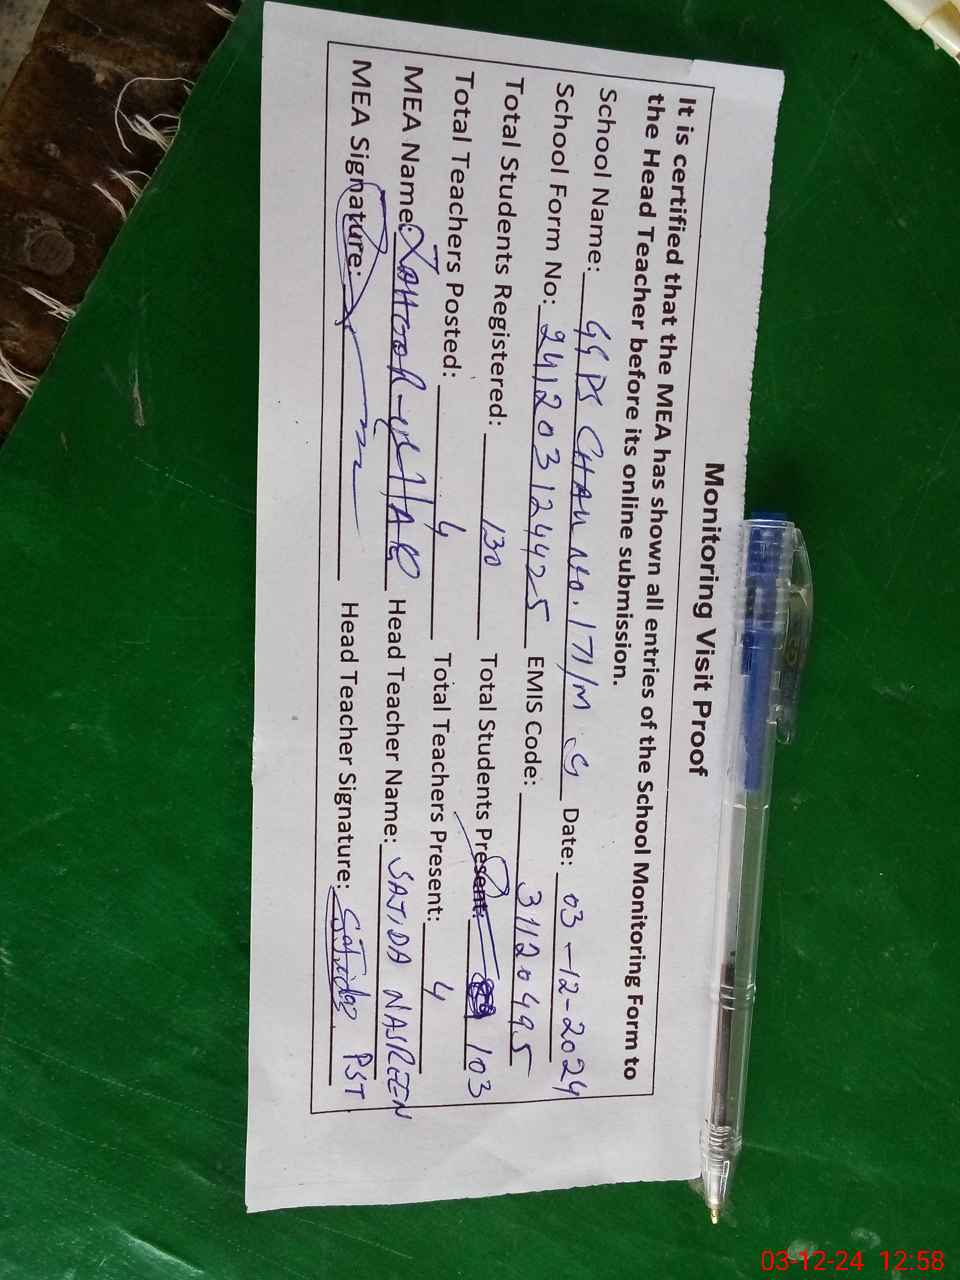 Monitoring Visit Proof
It is certified that the MEA has shown all entries of the School Monitoring Form to
the Head Teacher before its online submission.
School Name: GGPS CHAK No. 171/M Date: 03-12-2024
School Form No: 241203124425 EMIS Code: 31120495
Total Students Registered: 130 Total Students Present: 103
Total Teachers Posted: 4 Total Teachers Present: 4
MEA Name: ZAHOOR-ul-HAQ Head Teacher Name: SAJIDA NASREEN
MEA Signature: Head Teacher Signature: Sajida PST
03-12-24 12:58